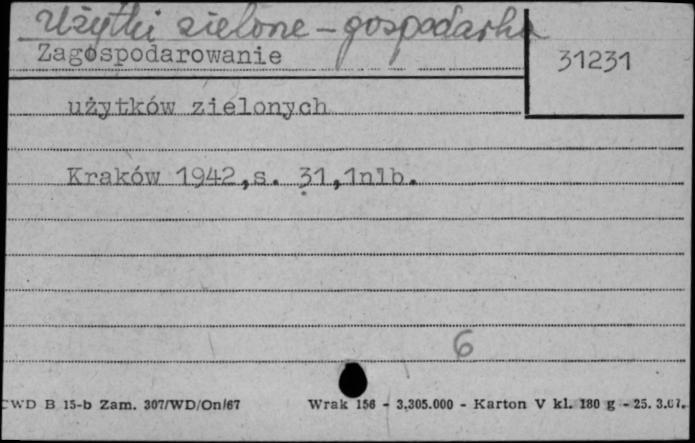 Użytki zielone - gospodarka
Zagospodarowanie
31231
użytków zielonych
Kraków 1942,s. 31,1nlb.
6
CWD B 15-b Zam. 307/WD/On/67 Wrak 156 - 3,305.000 - Karton V kl. 180 g - 25. 3.67.